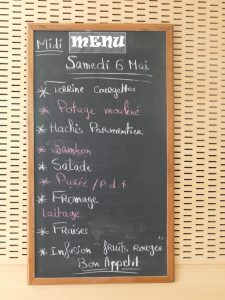 Midi MENU
Samedi 6 Mai
* Terrine Courgettes
* Potage mouliné
* Hachis Parmentier
* Jambon
* Salade
* Purée / P.d.t
* Fromage
Laitage
* Fraises
* Infusion "fruits rouges"
Bon Appetit